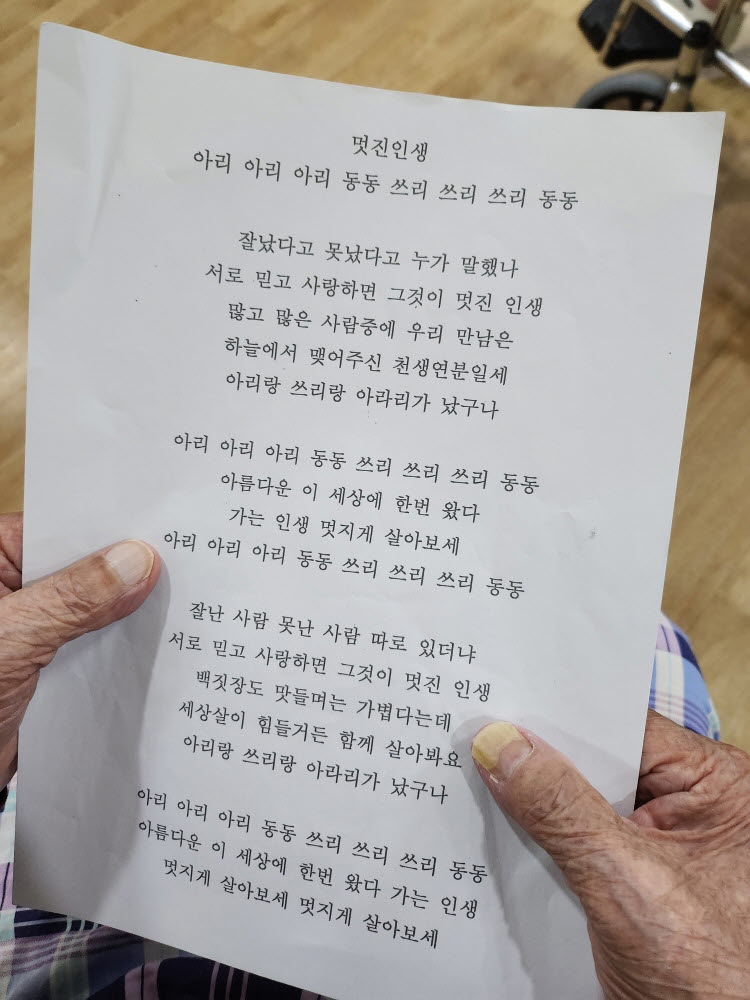 멋진인생
아리 아리 아리 동동 쓰리 쓰리 쓰리 동동
잘났다고 못났다고 누가 말했나
서로 믿고 사랑하면 그것이 멋진 인생
많고 많은 사람중에 우리 만남은
하늘에서 맺어주신 천생연분일세
아리랑 쓰리랑 아라리가 났구나
아리 아리 아리 동동 쓰리 쓰리 쓰리 동동
아름다운 이 세상에 한번 왔다
가는 인생 멋지게 살아보세
아리 아리 아리 동동 쓰리 쓰리 쓰리 동동
잘난 사람 못난 사람 따로 있더냐
서로 믿고 사랑하면 그것이 멋진 인생
백짓장도 맛들며는 가볍다는데
세상살이 힘들거든 함께 살아봐요
아리랑 쓰리랑 아라리가 났구나
아리 아리 아리 동동 쓰리 쓰리 쓰리 동동
아름다운 이 세상에 한번 왔다 가는 인생
멋지게 살아보세 멋지게 살아보세